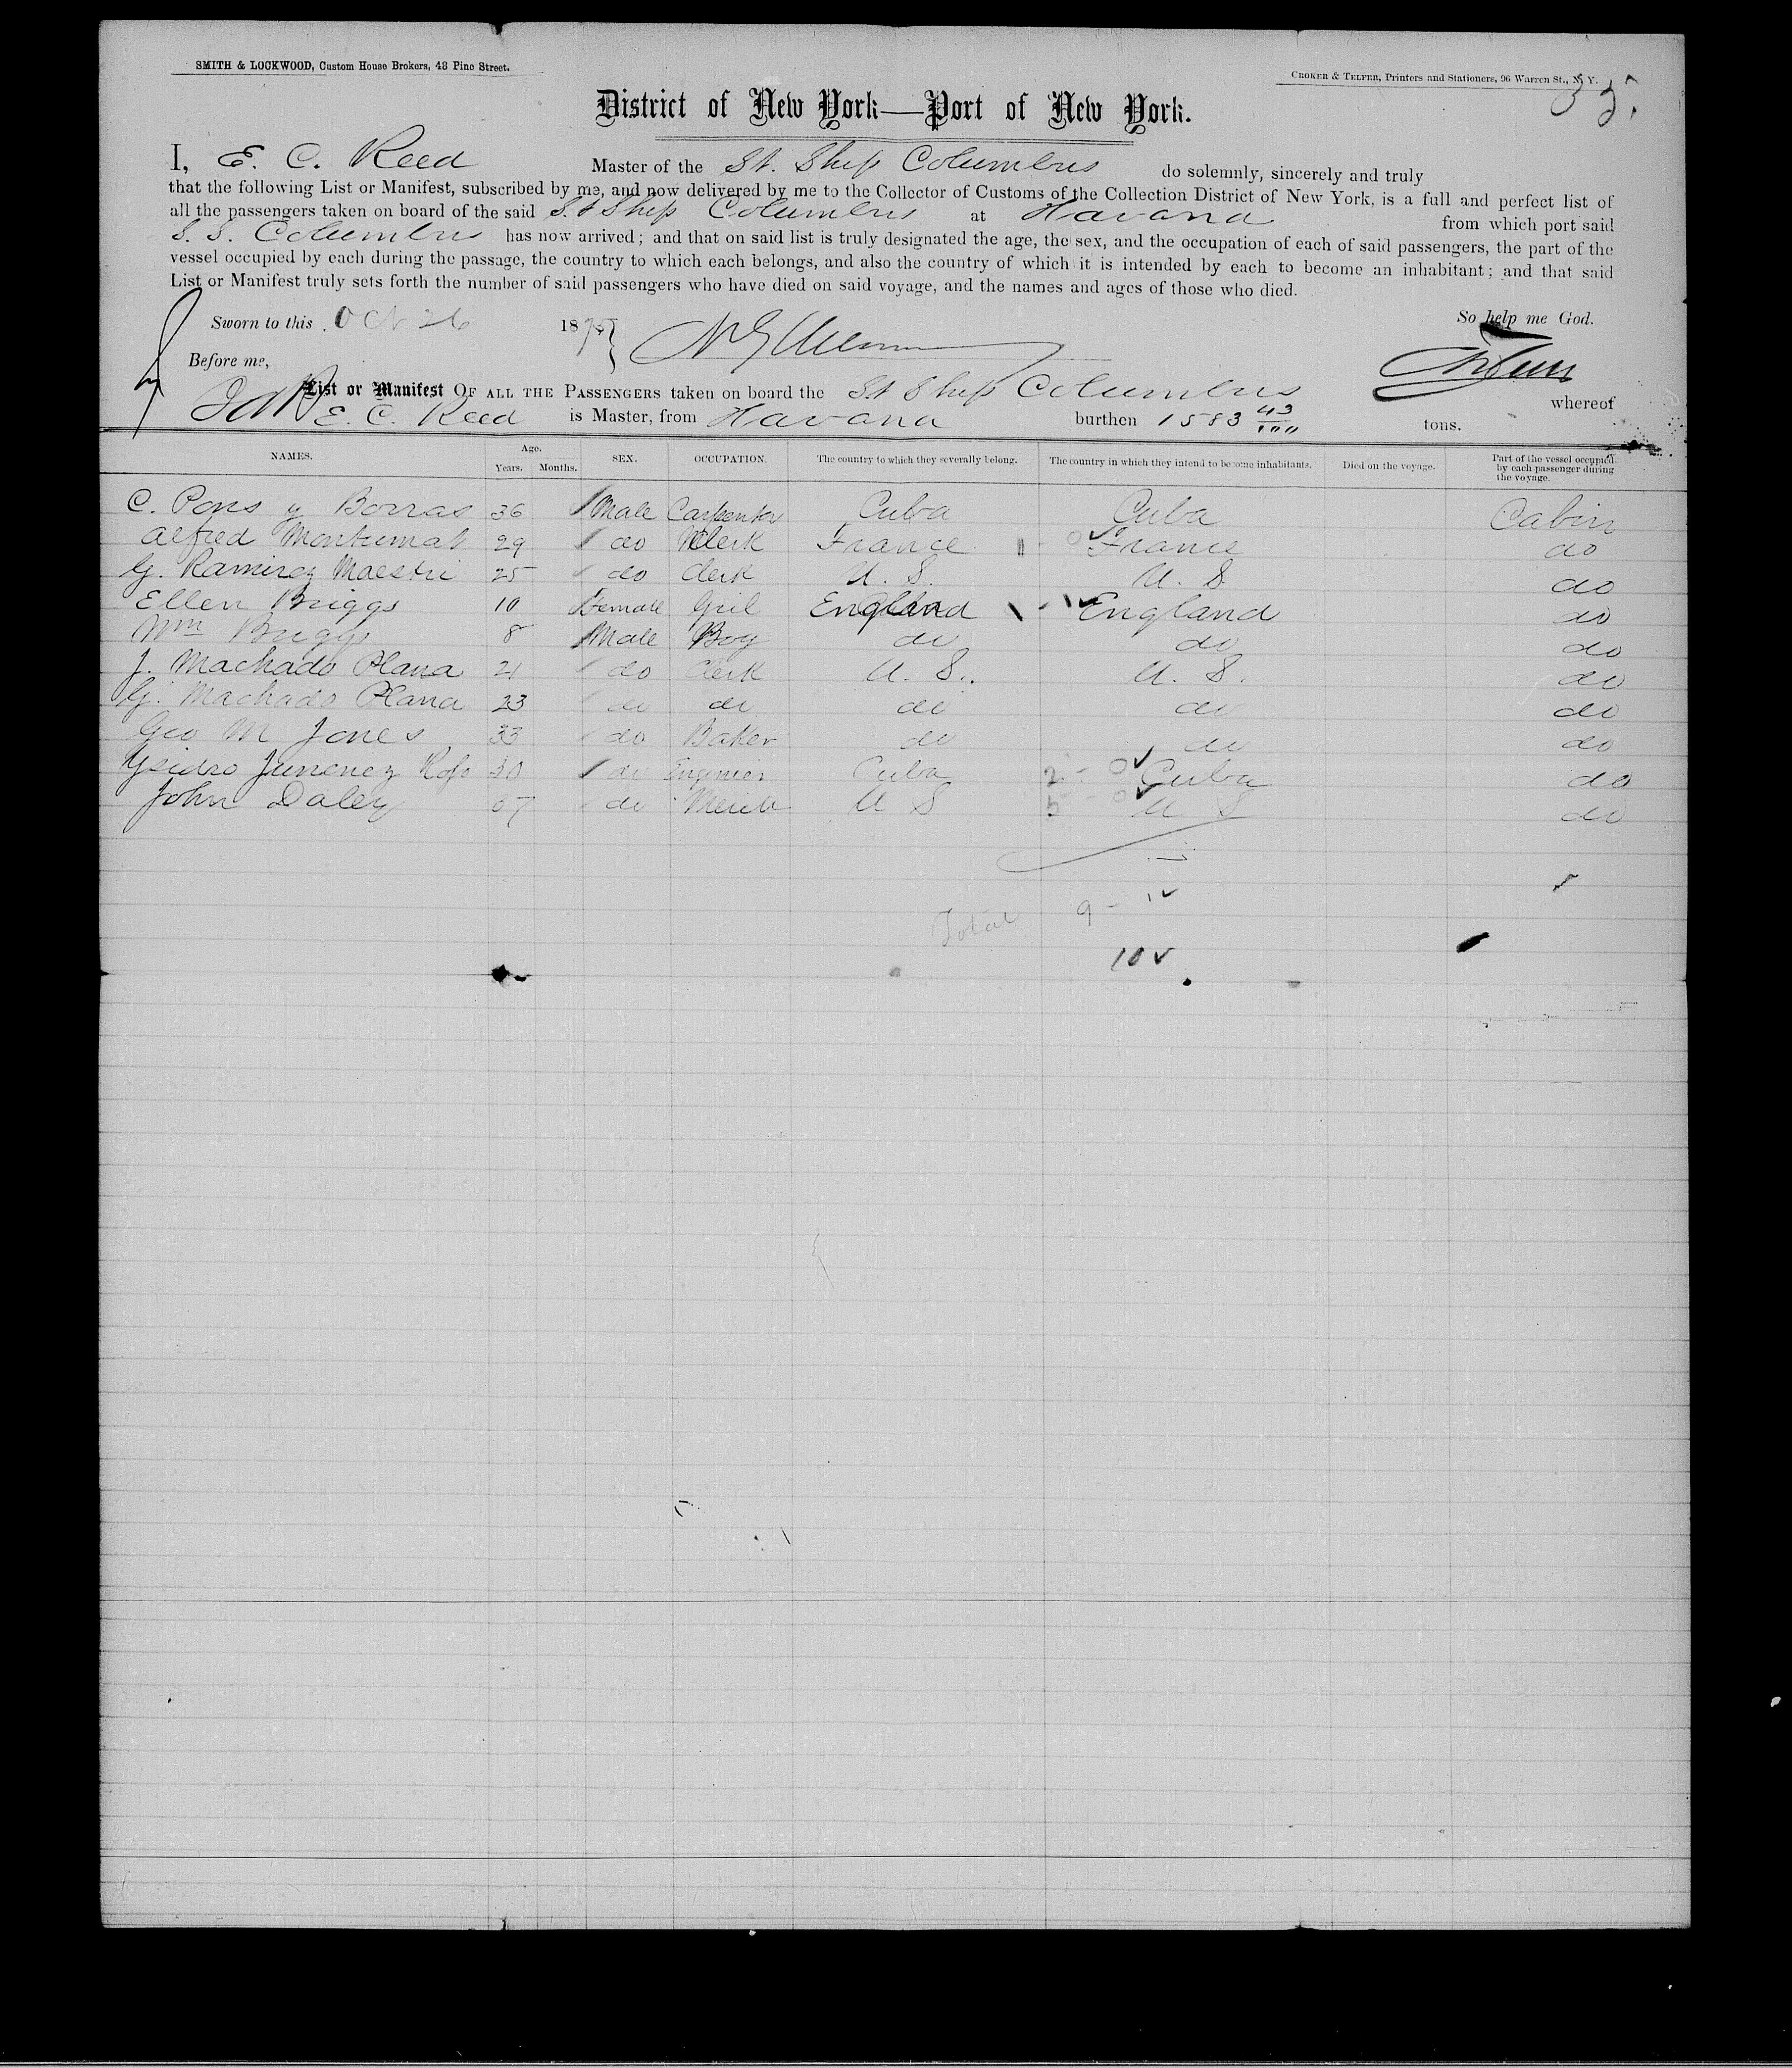 SMITH & LOCKWOOD, Custom House Brokers, 43 Pine Street.
CROKER & TELFER, Printers and Stationers, 96 Warren St., N. Y.
District of New York—Port of New York.
I, E. C. Reed Master of the St. Ship Columbus do solemnly, sincerely and truly
that the following List or Manifest, subscribed by me, and now delivered by me to the Collector of Customs of the Collection District of New York, is a full and perfect list of
all the passengers taken on board of the said St Ship Columbus at Havana from which port said
S. S. Columbus has now arrived; and that on said list is truly designated the age, the sex, and the occupation of each of said passengers, the part of the
vessel occupied by each during the passage, the country to which each belongs, and also the country of which it is intended by each to become an inhabitant; and that said
List or Manifest truly sets forth the number of said passengers who have died on said voyage, and the names and ages of those who died.
Sworn to this Oct 26 1875 So help me God.
Before me,
List or Manifest OF ALL THE PASSENGERS taken on board the St Ship Columbus whereof
E. C. Reed is Master, from Havana burthen 1583 43/100 tons.
NAMES. Age. Years. Months. SEX. OCCUPATION. The country to which they severally belong. The country in which they intend to become inhabitants. Died on the voyage. Part of the vessel occupied by each passenger during the voyage.
C. Pons y Borras 36 Male Carpenter Cuba Cuba Cabin
Alfred 29 do Clerk France France do
G. Ramirez Maestri 25 do Clerk U. S. U. S. do
Ellen Briggs 10 Female Gril England England do
Wm Briggs 8 Male Boy do do do
J. Machado Plana 21 do Clerk U. S. U. S. do
G. Machado Plana 23 do do do do do
Geo M Jones 33 do Baker do do do
Ysidro Jimenez 30 do Enginier Cuba 2 - 0 Cuba do
John Daley do U S 5 - 0 U S do
Total 9 - 1
10